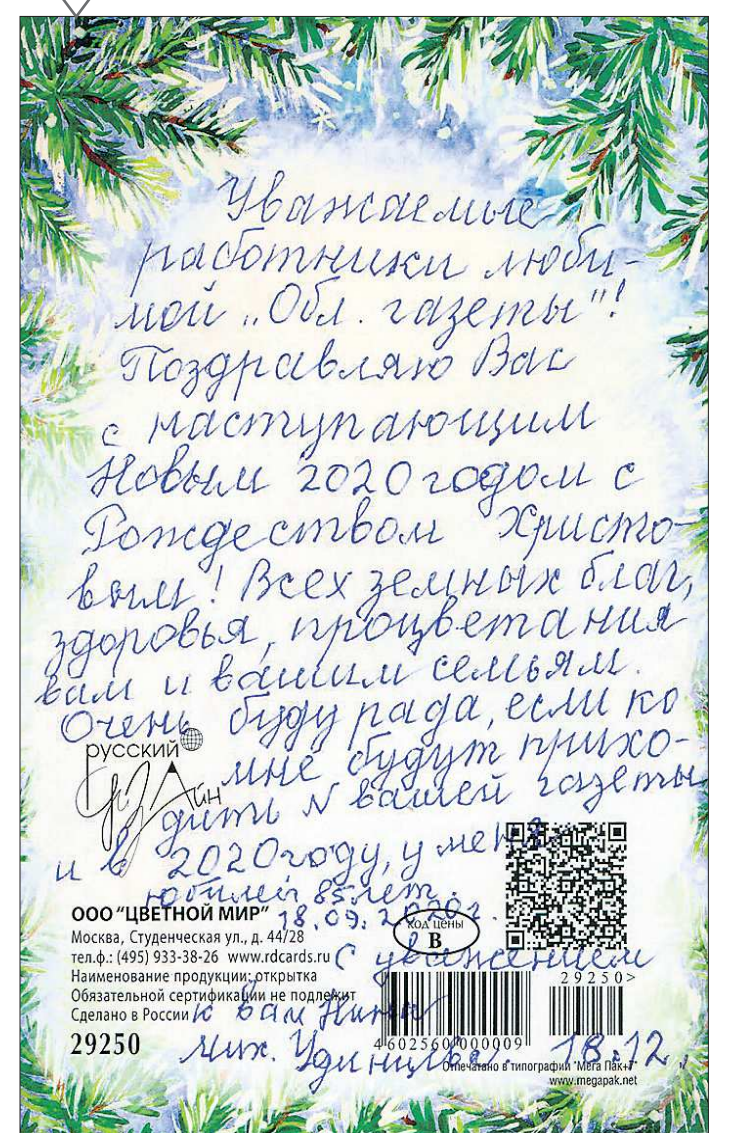 Уважаемые
работники люби-
мой „Обл. газеты"!
Поздравляю Вас
с наступающим
Новым 2020 годом с
Рождеством Христо-
вым! Всех земных благ,
здоровья, процветания
вам и вашим семьям.
Очень буду рада, если ко
мне будут прихо-
дить N вашей газеты
и в 2020 году, у меня
юбилей 85 лет.
18.09.2020г.
С уважением
к вам Нина
Мих. Удинцева. 18.12.
русский
дизАйн
ООО "ЦВЕТНОЙ МИР"
Москва, Студенческая ул., д. 44/28
тел.ф.: (495) 933-38-26 www.rdcards.ru
Наименование продукции: открытка
Обязательной сертификации не подлежит
Сделано в России
29250
код цены
В
29250>
4 602560 000009
Отпечатано в типографии "Мега Пак+"
www.megapak.net